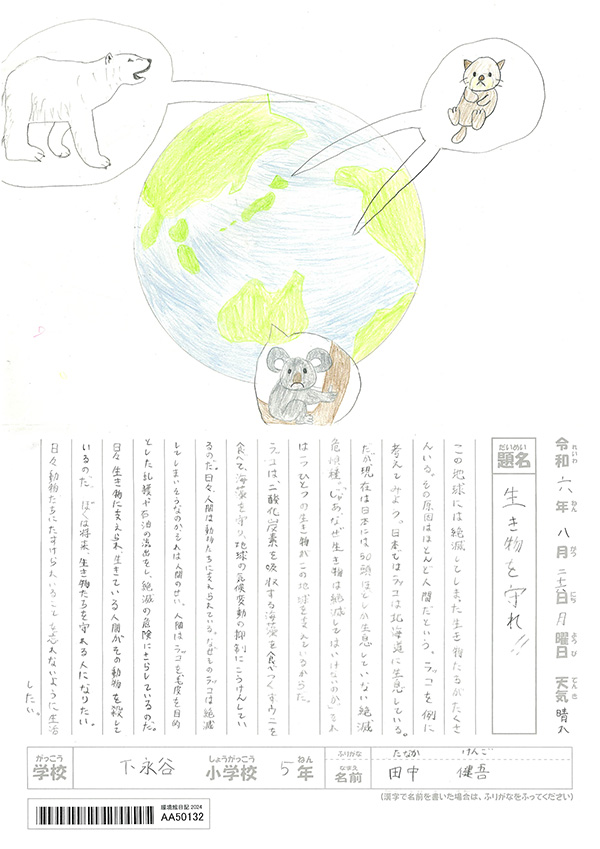 令和六年八月二十六日月曜日 天気晴れ
れいわ ねん がつ にち ようび てんき
だいめい
題名 生き物を守れ!!
この地球には絶滅してしまった生き物たちがたくさ
んいる。その原因はほとんど人間だという。ラッコを例に
考えてみよう。日本ではラッコは北海道に生息している。
だが現在は日本には50頭ほどしか生息していない絶滅
危惧種。「じゃあ、なぜ生き物は絶滅してはいけないのか」それ
は一つひとつの生き物がこの地球を支えているからだ。
ラッコは、二酸化炭素を吸収する海藻を食べつくすウニを
食べて、海藻を守り、地球の気候変動の抑制にこうけんしてい
るのだ。日々、人間は動物たちに支えられている。なぜそのラッコは絶滅
してしまいそうなのか。それは人間のせい。人間はラッコを毛皮を目的
とした乱獲や石油の流出をし、絶滅の危険にさらしているのだ。
日々生き物に支えられ、生きている人間がその動物を殺して
いるのだ。ぼくは将来、生き物たちを守れる人になりたい。
日々動物たちにたすけられていることも忘れないように生活
したい。
がっこう しょうがっこう ねん
学校 下永谷 小学校 5年
ふりがな たなか けんご
なまえ
名前 田中 健吾
(漢字で名前を書いた場合は、ふりがなをふってください)
環境絵日記 2024
AA50132